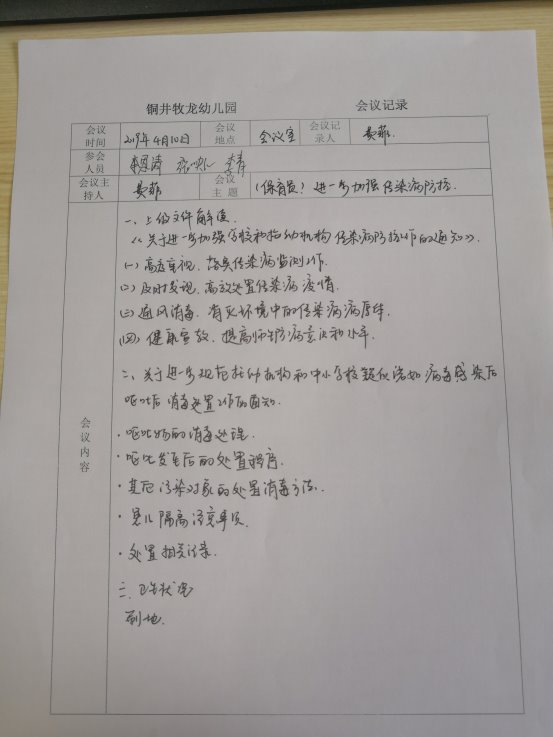 铜井牧龙幼儿园 会议记录
会议时间 2019年4月10日 会议地点 会议室 会议记录人 姜菲
参会人员
会议主持人 姜菲 会议主题 (保育员)进一步加强传染病防控.
会议内容
一、上级文件解读
《关于进一步加强学校和托幼机构传染病防控工作的通知》.
(一) 高度重视、落实传染病监测工作.
(二) 及时发现、高效处置传染病疫情.
(三) 通风消毒、有灭环境中的传染病病原体
(四) 健康宣教、提高师生防病意识和水平
二、关于进一步规范托幼机构和中小学校疑似诺如病毒感染后
呕吐后消毒处置工作的通知.
·呕吐物的消毒处理.
·呕吐发生后的处置程序.
·其它污染对象的处置消毒方法.
·患儿隔离注意事项.
·处置相关记录.
三、卫生状况